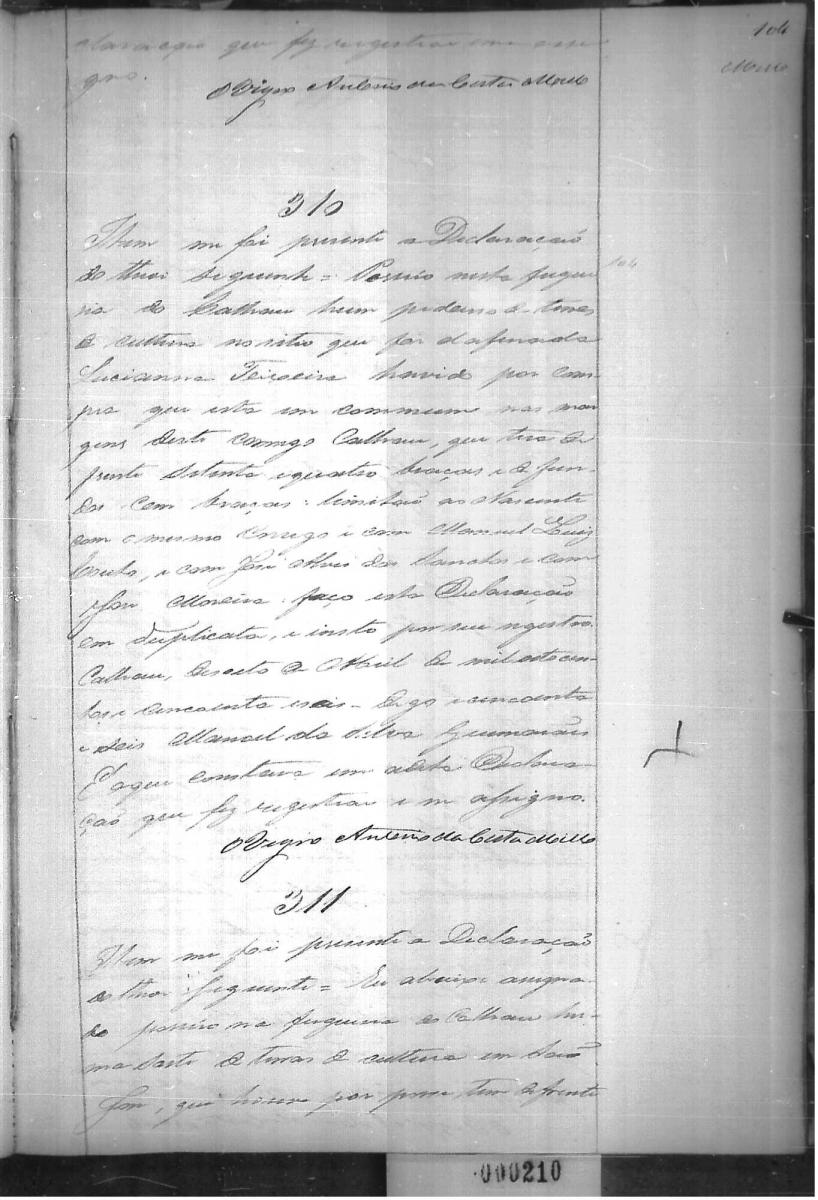 104
Mello
claração que fez registrar e me assi
gno.
O Vigro Antonio da Costa Mello
310
Item me foi presente a Declaração
do theor seguinte = Possuo nesta fregue
sia do Calhau hum pedasso de terras
de cultura no sitio que foi da finada
Lucianna Teixeira havido por com-
pra que esta em commum nas mar
gens deste corrego Calhau, que tera de
frente setenta e quatro braças e de fun-
dos cem braças: limitão ao Nascente
com o mesmo Corrego e com Manoel Luiz
Couto, e com José Alves dos Santos e com
José Moreira: faço esta Declaração
em duplicata, e insto por seu registro.
Calhau, deseoito de Abril de mil oito cen-
tos e cincoenta e seis - digo e cincoenta
e seis Manoel da Silva Guimarães
E o que constava em a dita Declara-
ção que fez registrar e m assigno.
O Vigro Antonio da Costa Mello
311
Item me foi presente a Declaração
do theor seguinte = Eu abaixo assigna-
do possuo na freguesia do Calhau hu-
ma sorte de terras de cultura em São
José, que houve por posse tem de frente
104
000210